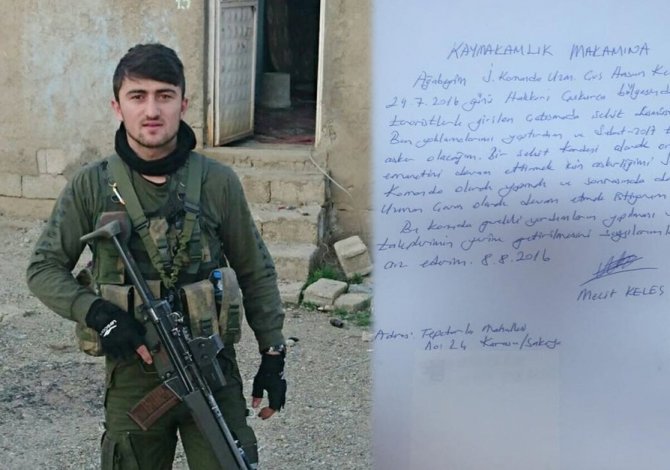 13
KAYMAKAMLIK MAKAMINA
Ağabeyim J. Komando Uzm. Çvş Hasan Ke
24.7.2016 günü Hakkari Çukurca bölgesinde
teröristlerle girilen çatışmada şehit
Ben yoklamalarımı yaptırdım ve Şubat-2017
asker olacağım. Bir şehit kardeşi olarak
emanetini devam ettirmek için askerliğimi
Komando olarak yapmak ve sonrasında da
Uzman Çavuş olarak devam etmek istiyorum
Bu konuda gerekli yardımların yapılması
taleplerimin yerine getirilmesini saygılarımla
arz ederim. 8.8.2016
Mecit KELEŞ
Adres: Tepetarla Mahallesi
No: 24 Karasu/Sakarya